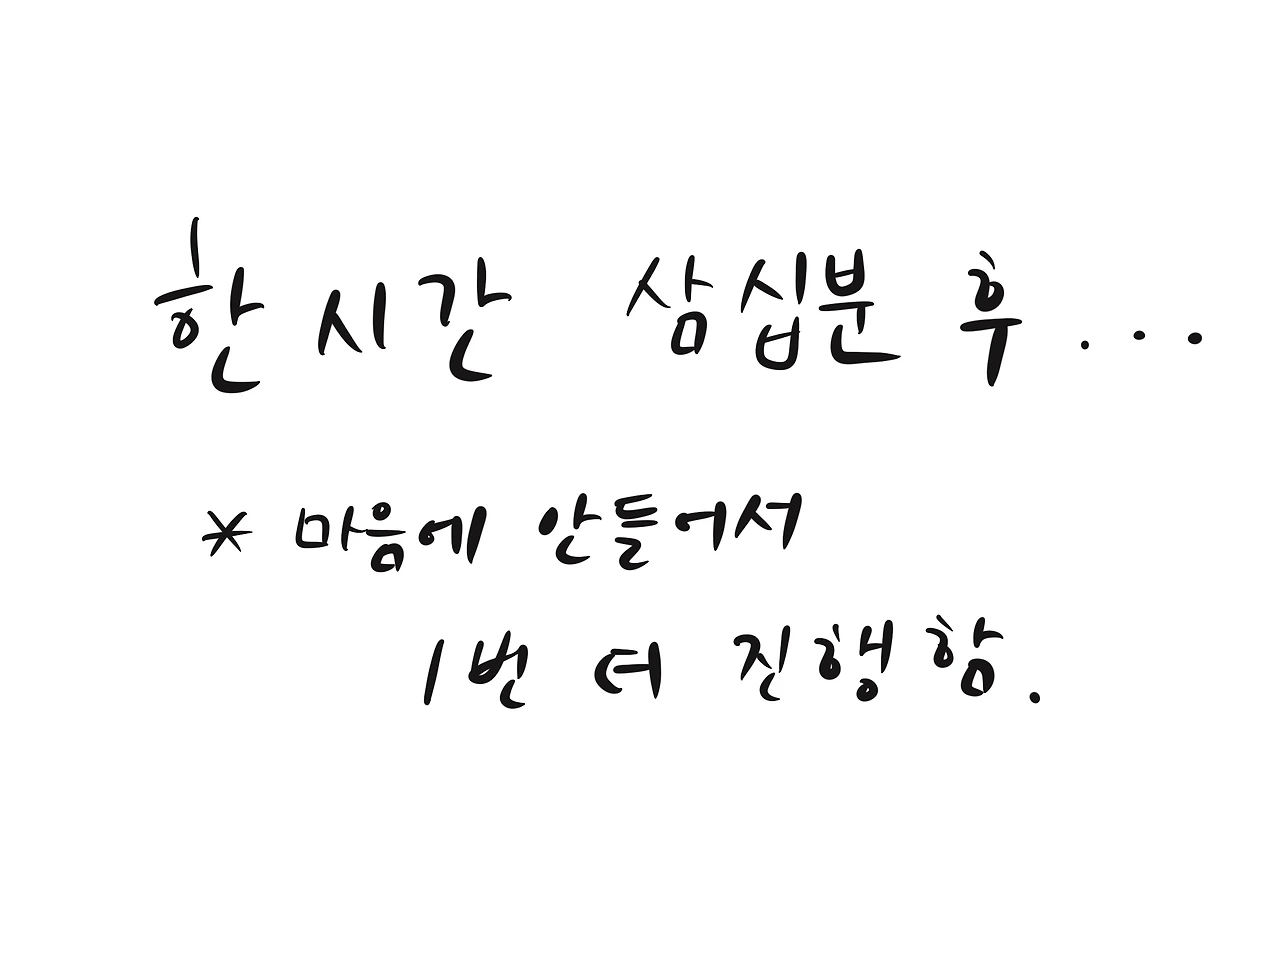 한시간 삼십분 후...
* 마음에 안들어서
1번 더 진행함.